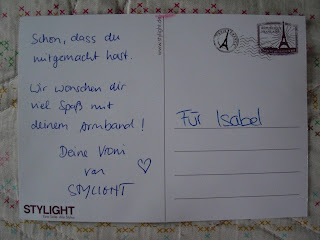 Schön, dass du
mitgemacht hast.
Wir wünschen dir
viel Spaß mit
deinem Armband!
Deine Vroni
von
STYLIGHT
STYLIGHT
www.stylight.de
Für Isabel